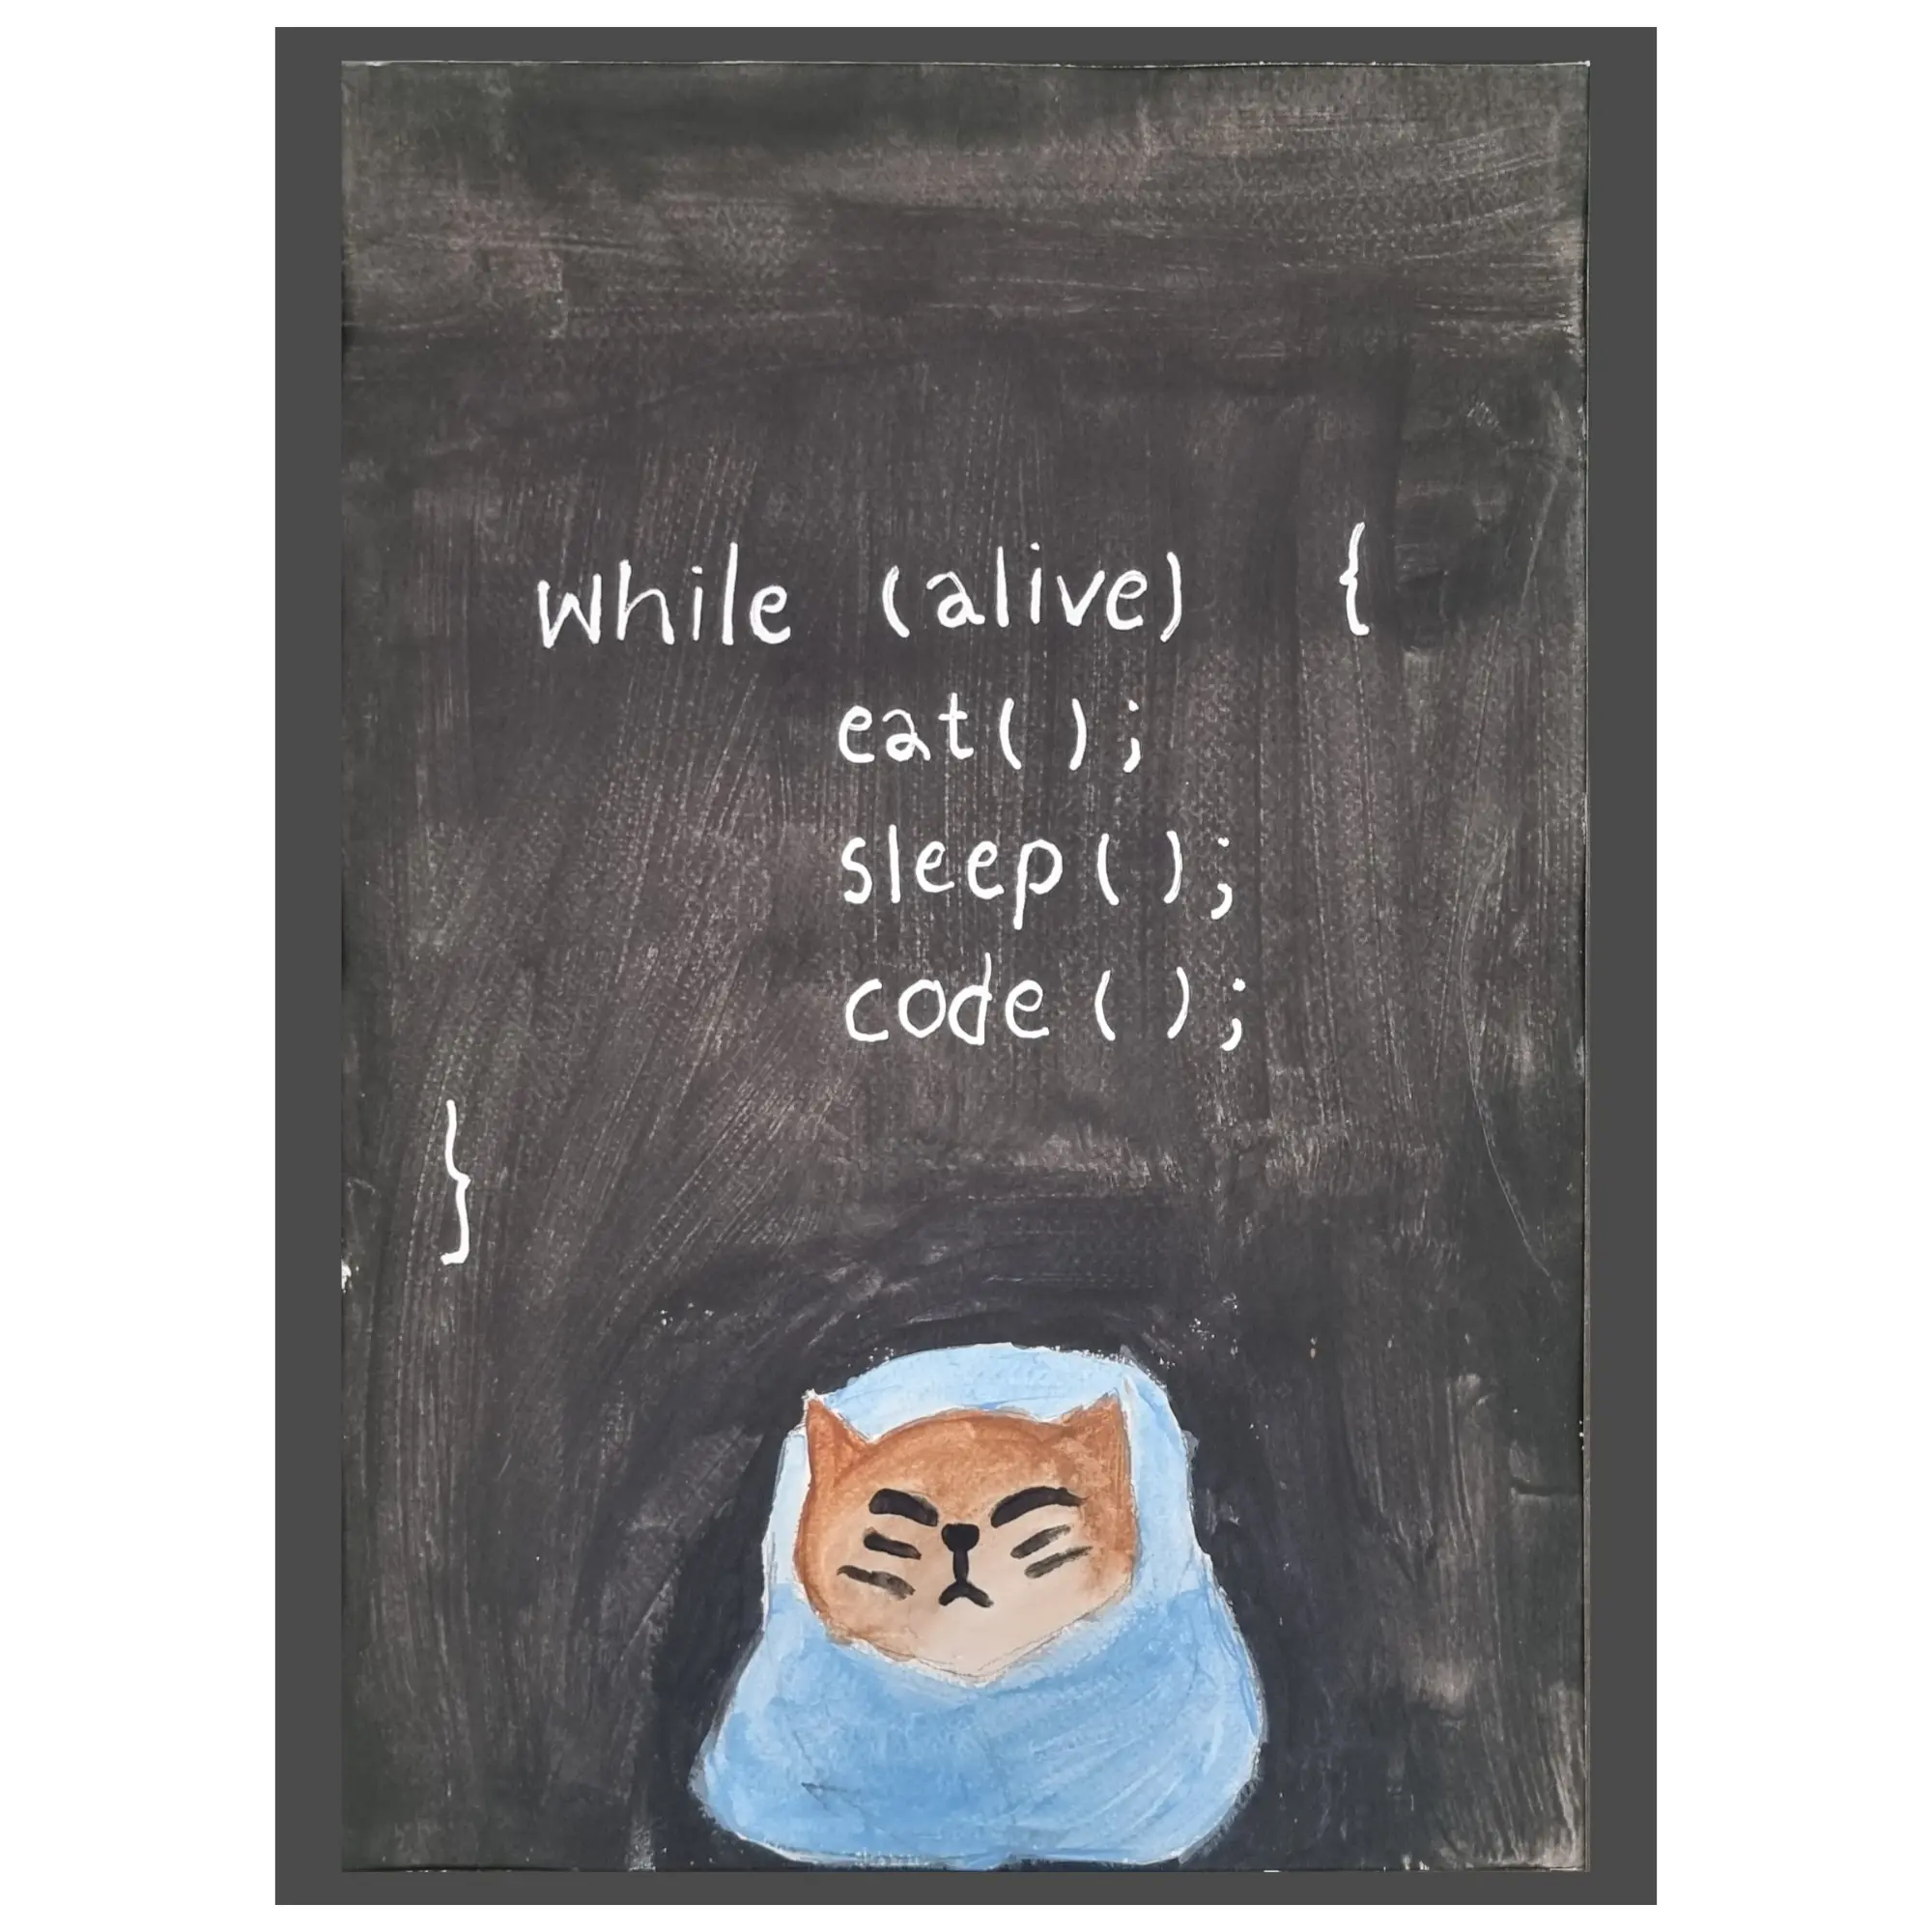 while (alive) {
eat();
sleep();
code();
}